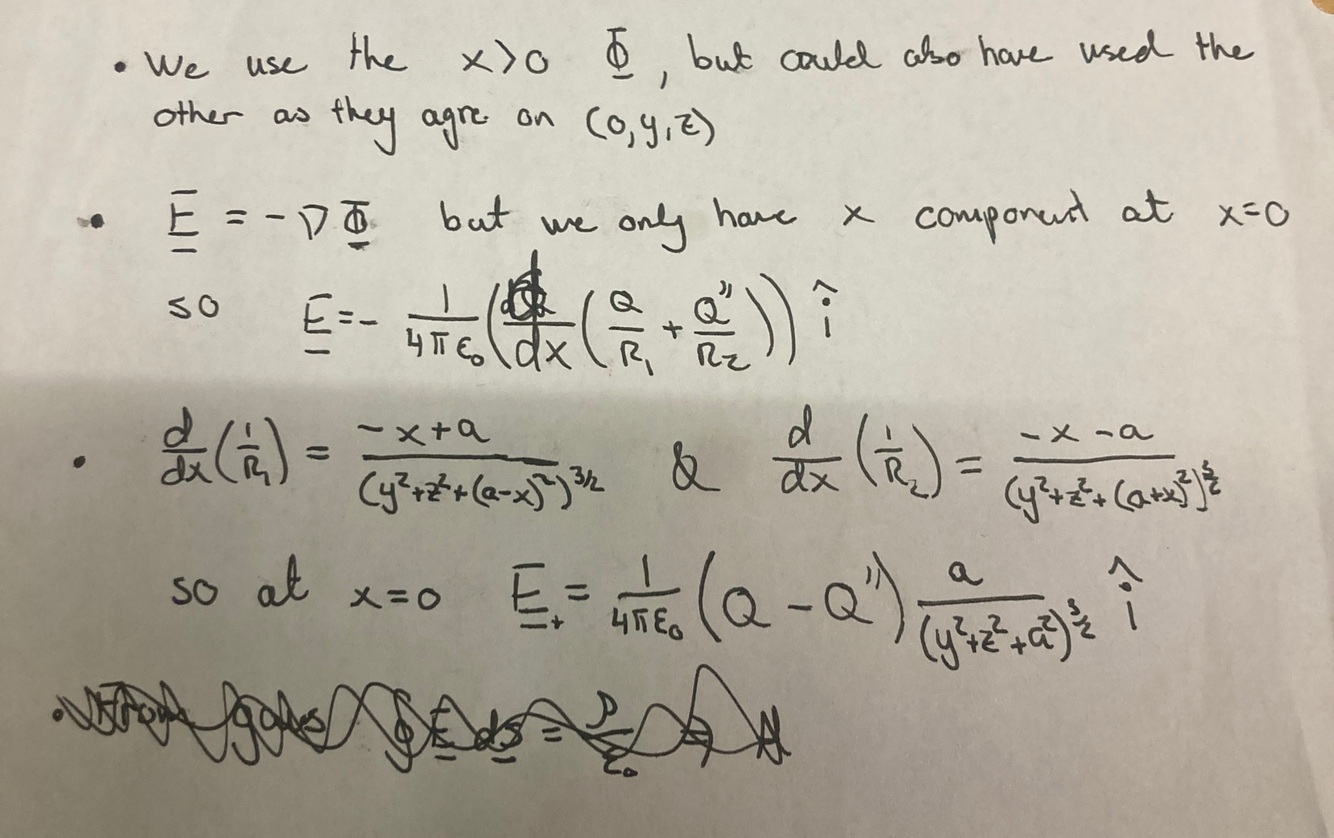 • We use the x>0 Φ, but could also have used the
other as they agre on (0,y,z)
• E = -∇Φ but we only have x component at x=0
so E = - 1/(4πε₀) (d/dx (Q/R₁ + Q''/R₂)) î
• d/dx (1/R₁) = (-x+a)/(y²+z²+(a-x)²)^3/2 & d/dx (1/R₂) = (-x-a)/(y²+z²+(a+x)²)^3/2
so at x=0 E₊ = 1/(4πε₀) (Q - Q'') a/(y²+z²+a²)^3/2 î